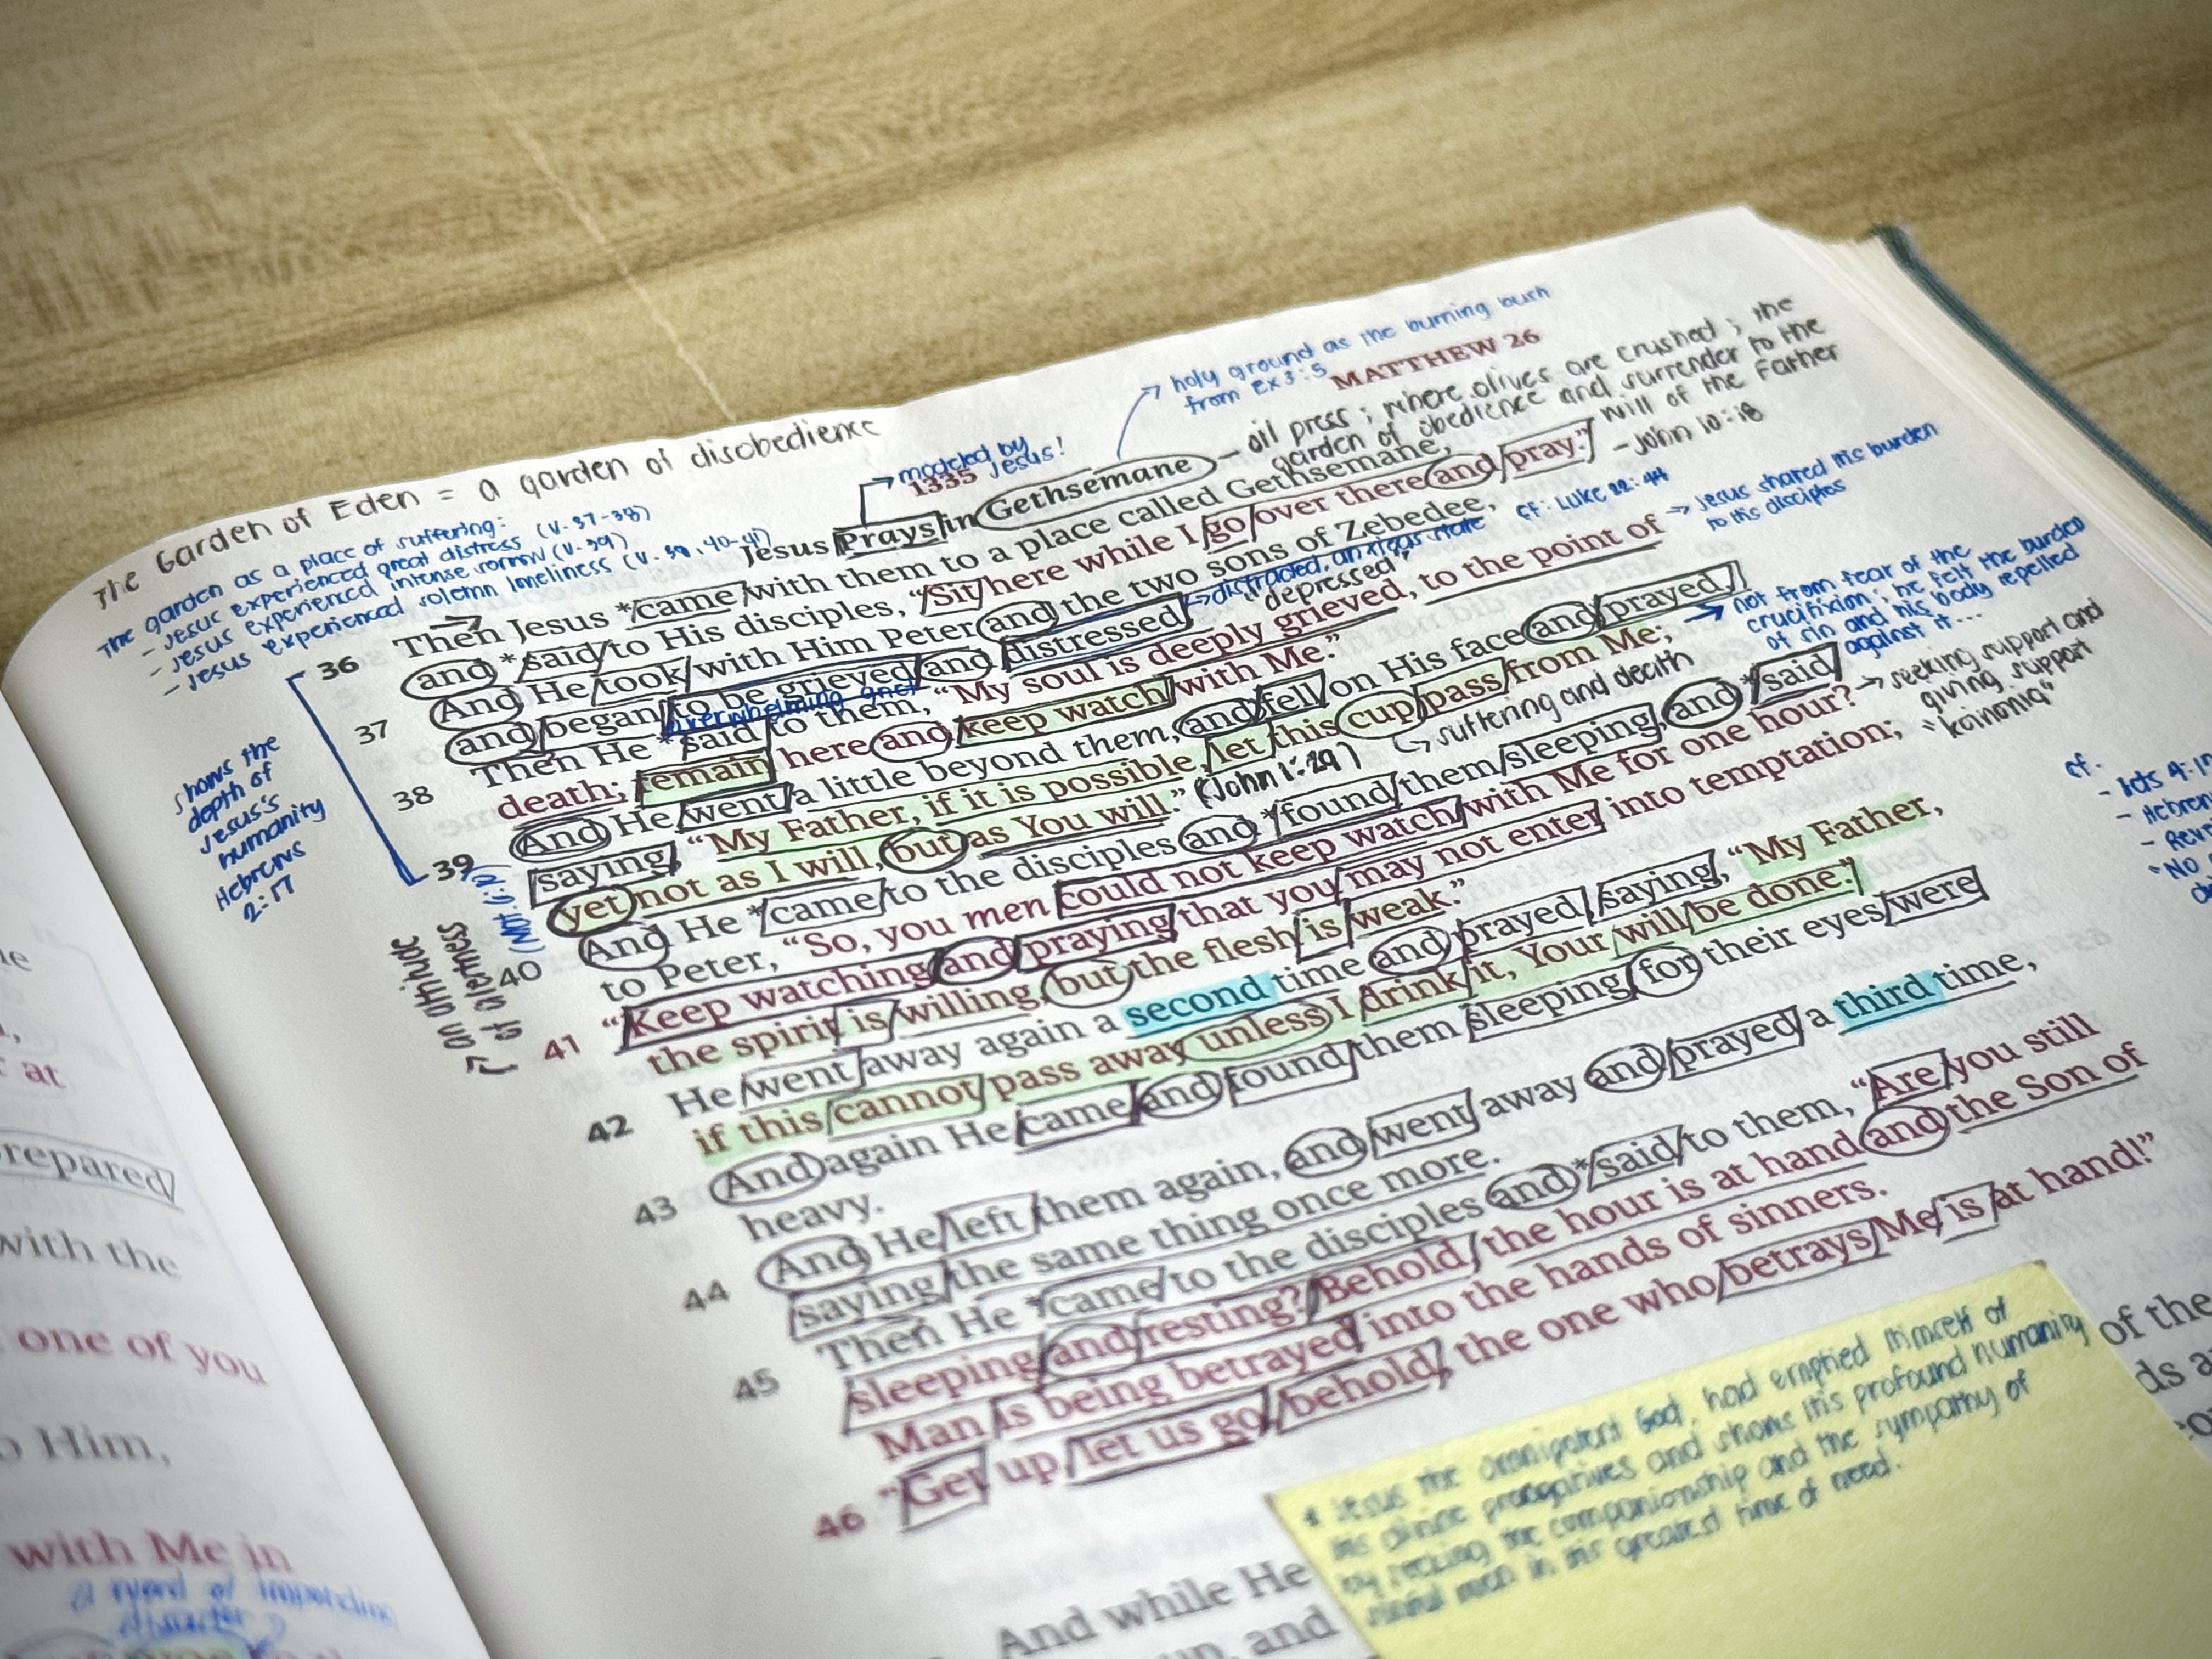 The Garden of Eden = a garden of disobedience
The garden as a place of suffering:
- Jesus experienced great distress (v. 37-38)
- Jesus experienced intense sorrow (v. 39)
- Jesus experienced solemn loneliness (v. 39, 40-41)
holy ground as the burning bush
from ex 3:5
MATTHEW 26
1335
modeled by
Jesus!
- oil press ; where olives are crushed ; the
garden of obedience and surrender to the
will of the Father
- John 10:18
Jesus Prays in Gethsemane
36 Then Jesus *came with them to a place called Gethsemane,
and *said to His disciples, “Sit here while I go over there and pray.”
37 And He took with Him Peter and the two sons of Zebedee,
and began to be grieved and distressed.
→ distracted, anxious state
"depressed"
cf: Luke 22:44
overwhelming grief
38 Then He *said to them, “My soul is deeply grieved, to the point of
death; remain here and keep watch with Me.”
→ Jesus shared his burden
to his disciples
39 And He went a little beyond them, and fell on His face and prayed,
saying, “My Father, if it is possible, let this cup pass from Me;
yet not as I will, but as You will.” (John 1:29)
suffering and death
→ not from fear of the
crucifixion; he felt the burden
of sin and his body repelled
against it...
40 And He *came to the disciples and *found them sleeping, and *said
to Peter, “So, you men could not keep watch with Me for one hour?
→ seeking support and
giving support
"koinonia"
41 “Keep watching and praying that you may not enter into temptation;
the spirit is willing, but the flesh is weak.”
42 He went away again a second time and prayed, saying, “My Father,
if this cannot pass away unless I drink it, Your will be done.”
43 And again He came and found them sleeping, for their eyes were
heavy.
44 And He left them again, and went away and prayed a third time,
saying the same thing once more.
45 Then He *came to the disciples and *said to them, “Are you still
sleeping and resting? Behold, the hour is at hand and the Son of
Man is being betrayed into the hands of sinners.
46 “Get up, let us go; behold, the one who betrays Me is at hand!”
And while He
up, and
of the
shows the
depth of
Jesus's
humanity
Hebrews
2:17
an attitude
of alertness
cf.
- Acts 4:1
"No
* Jesus the omnipotent God, had emptied himself of
his divine prerogatives and shows his profound humanity
by the companionship and the sympathy of
sinful men in his greatest time of need.
repared
with the
one of you
o Him,
with Me in
a word of impending
disaster